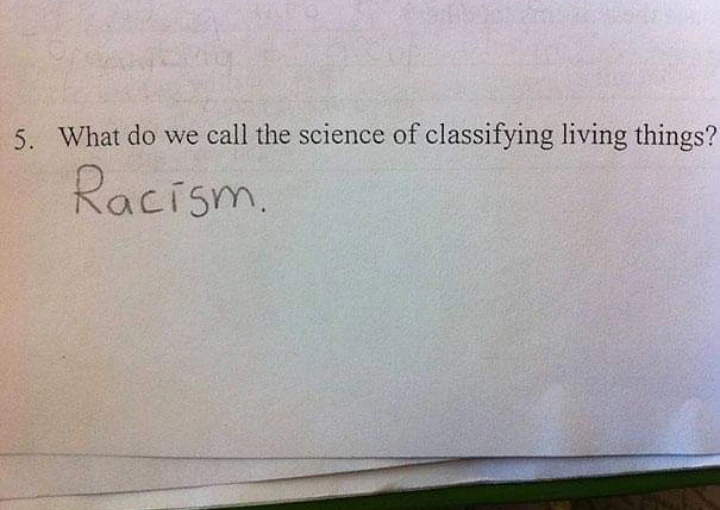 5. What do we call the science of classifying living things?
Racism.